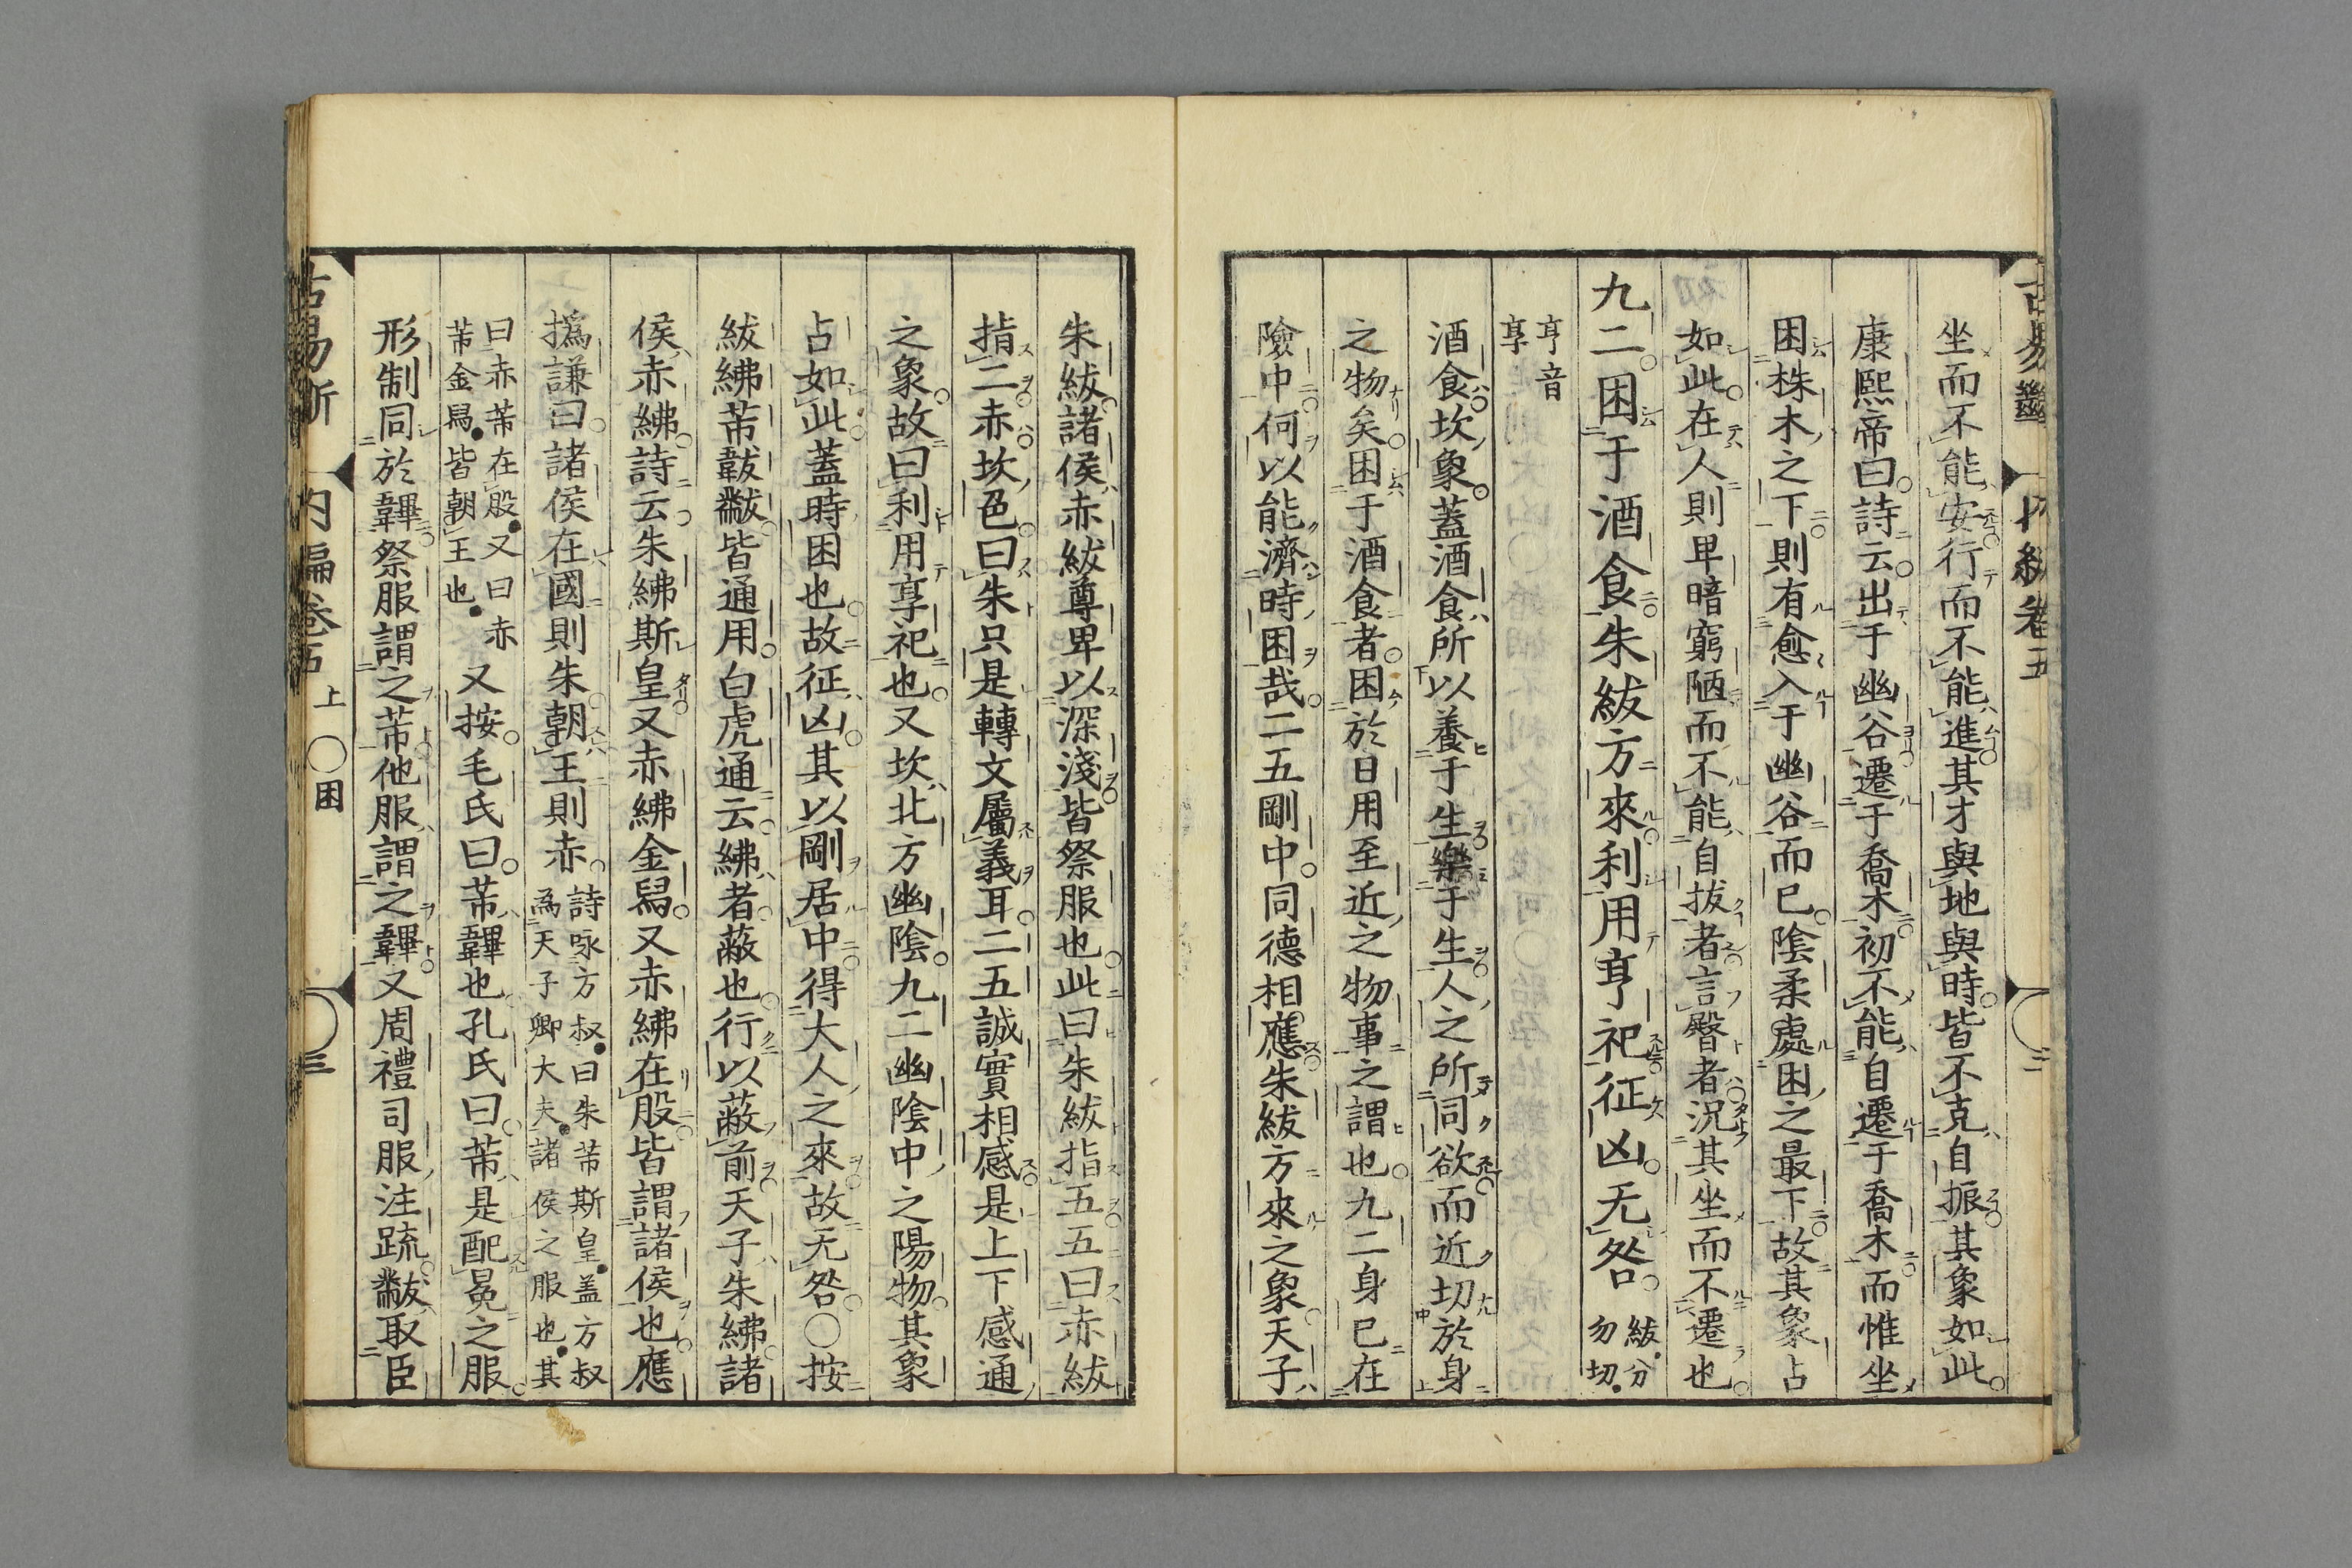 坐而不能安行而不能進其才與地與時皆不克自振其象如此
康熙帝曰詩云出于幽谷遷于喬木初不能自遷于喬木而惟坐
困株木之下則有愈入于幽谷而已陰柔處困之最下故其象占
如此在人則卑暗窮陋而不能自拔者言臀者況其坐而不遷也
九二困于酒食朱紱方來利用亨祀征凶无咎
紱分
勿切
亨音
享
酒食坎象蓋酒食所以養于生樂于生人之所同欲而近切於身
之物矣困于酒食者困於日用至近之物事之謂也九二身已在
險中何以能濟時困哉二五剛中同德相應朱紱方來之象天子
朱紱諸侯赤紱尊卑以深淺皆祭服也此曰朱紱指五五曰赤紱
指二赤坎色曰朱只是轉文屬義耳二五誠實相感是上下感通
之象故曰利用享祀也又坎北方幽陰九二幽陰中之陽物其象
占如此蓋時困也故征凶其以剛居中得大人之來故无咎〇按
紱紼芾韍黻皆通用白虎通云紼者蔽也行以蔽前天子朱紼諸
侯赤紼詩云朱紼斯皇又赤紼金舄又赤紼在股皆謂諸侯也應
撝謙曰諸侯在國則朱朝王則赤
詩咏方叔曰朱芾斯皇蓋方叔
為天子卿大夫諸侯之服也其
曰赤芾在股又曰赤
芾金舄皆朝王也
又按毛氏曰芾韠也孔氏曰芾是配冕之服
形制同於韠祭服謂之芾他服謂之韠又周禮司服注疏黻取臣
內編卷五
上
〇困
三